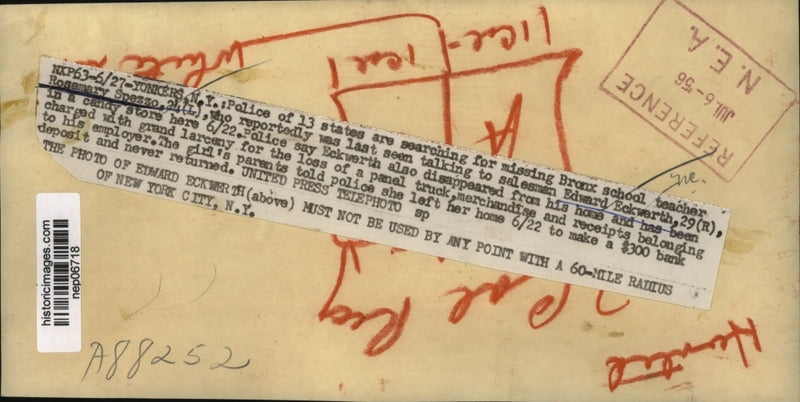 NXP63-6/27-YONKERS,N.Y.:Police of 13 states are searching for missing Bronx school teacher
Rosemary Spezzo,24(L),who reportedly was last seen talking to salesman Edward Eckwerth,29(R),
in a candy store here 6/22.Police say Eckwerth also disappeared from his home and has been
charged with grand larceny for the loss of a panel truck,merchandise and receipts belonging
to his employer.The girl's parents told police she left her home 6/22 to make a $300 bank
deposit and never returned. UNITED PRESS TELEPHOTO sp
THE PHOTO OF EDWARD ECKWERTH(above) MUST NOT BE USED BY ANY POINT WITH A 60-MILE RADIUS
OF NEW YORK CITY, N.Y.
REFERENCE
JUL 6-'56
N. E. A.
historicimages.com
nep06718
A88252